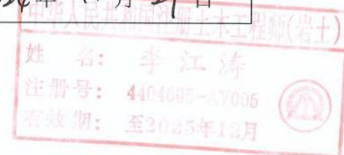 年 月
中华人民共和国注册土木工程师(岩土)
姓 名: 李江涛
注册号: 4404695-AY005
有效期: 至2025年12月